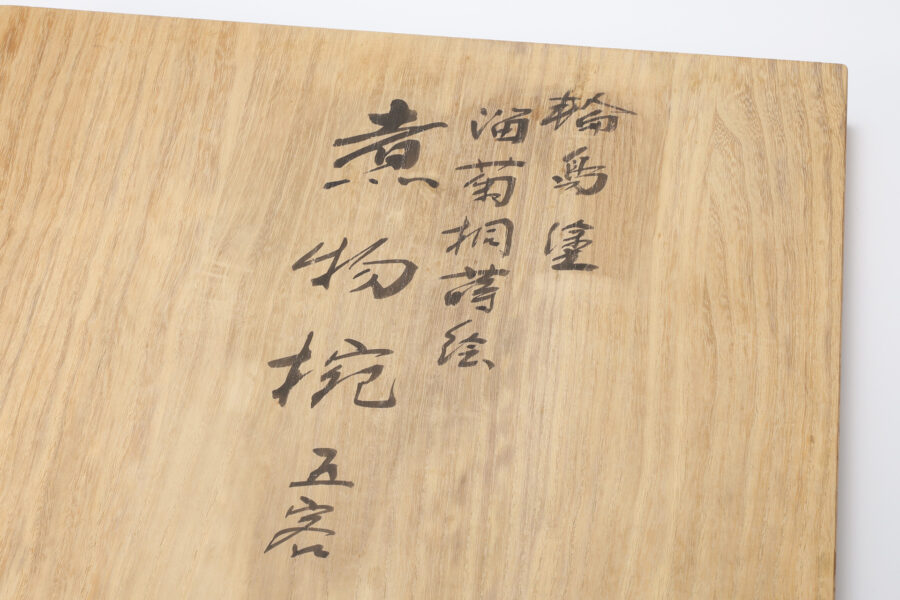 輪島塗
溜菊桐蒔絵
煮物椀 五客